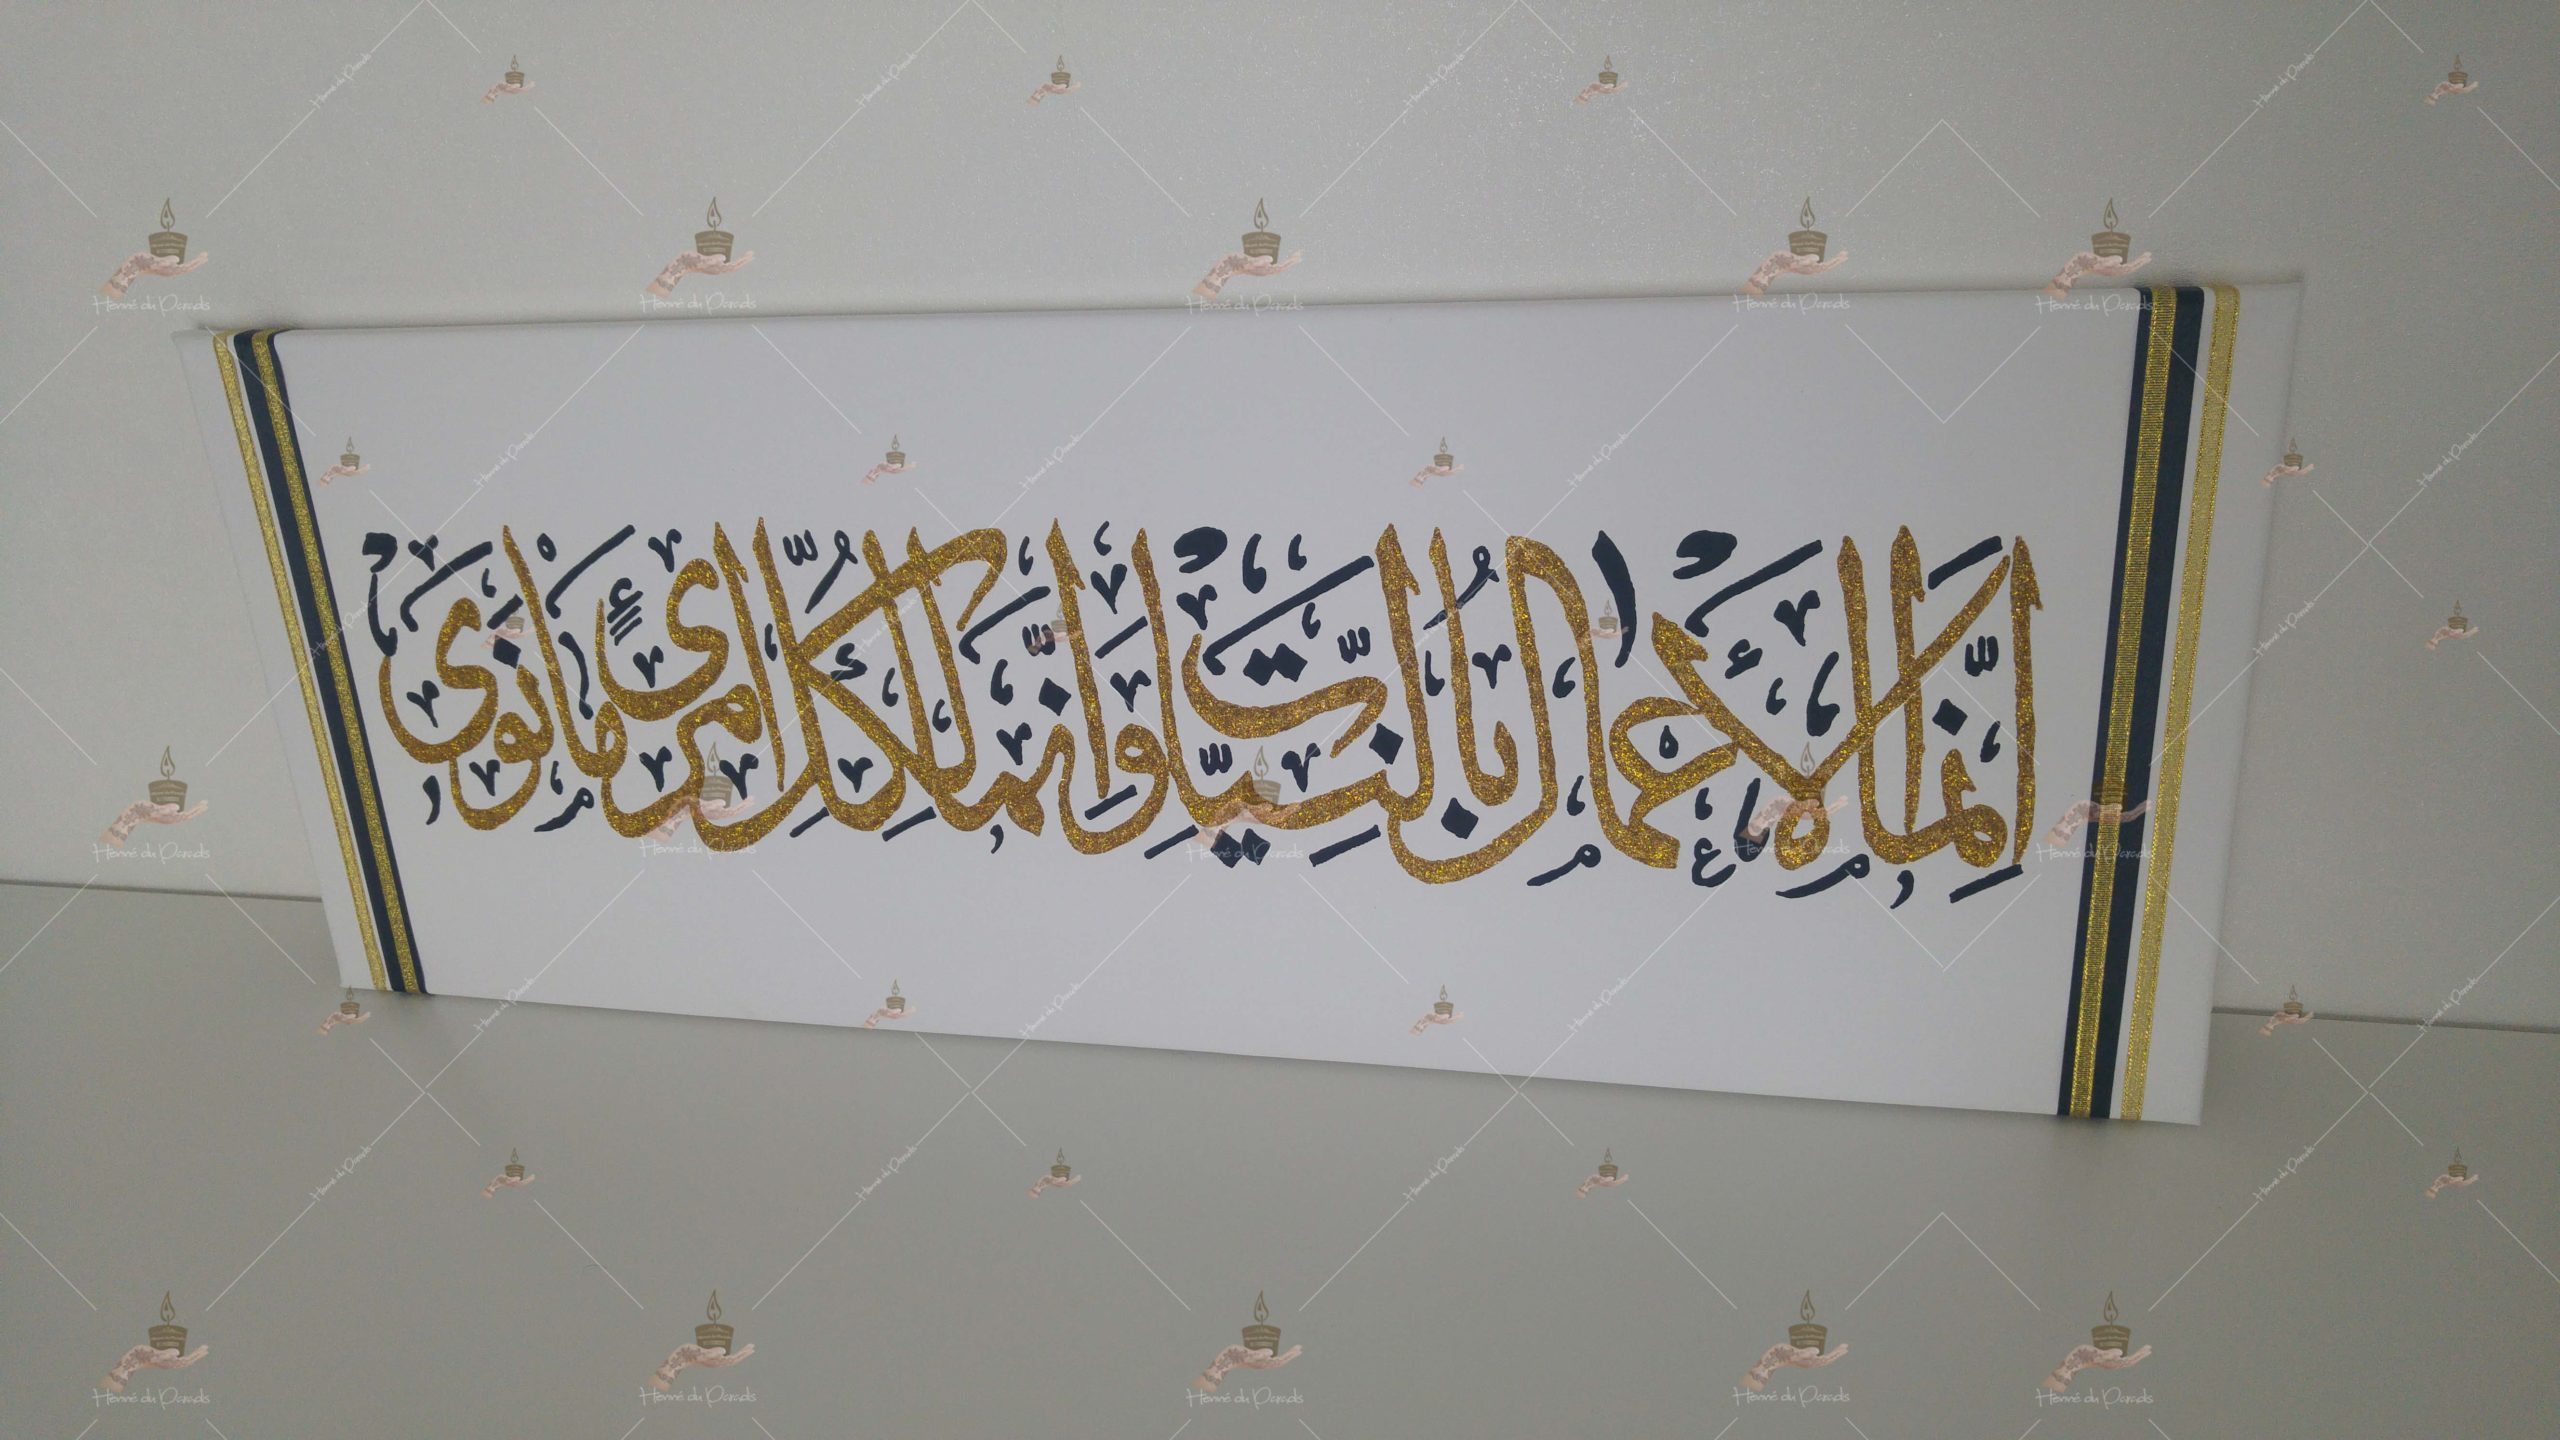 إِنَّمَا الأَعْمَالُ بِالنِّيَّاتِ وَإِنَّمَا لِكُلِّ امْرِئٍ مَا نَوَى
Henné du Paradis